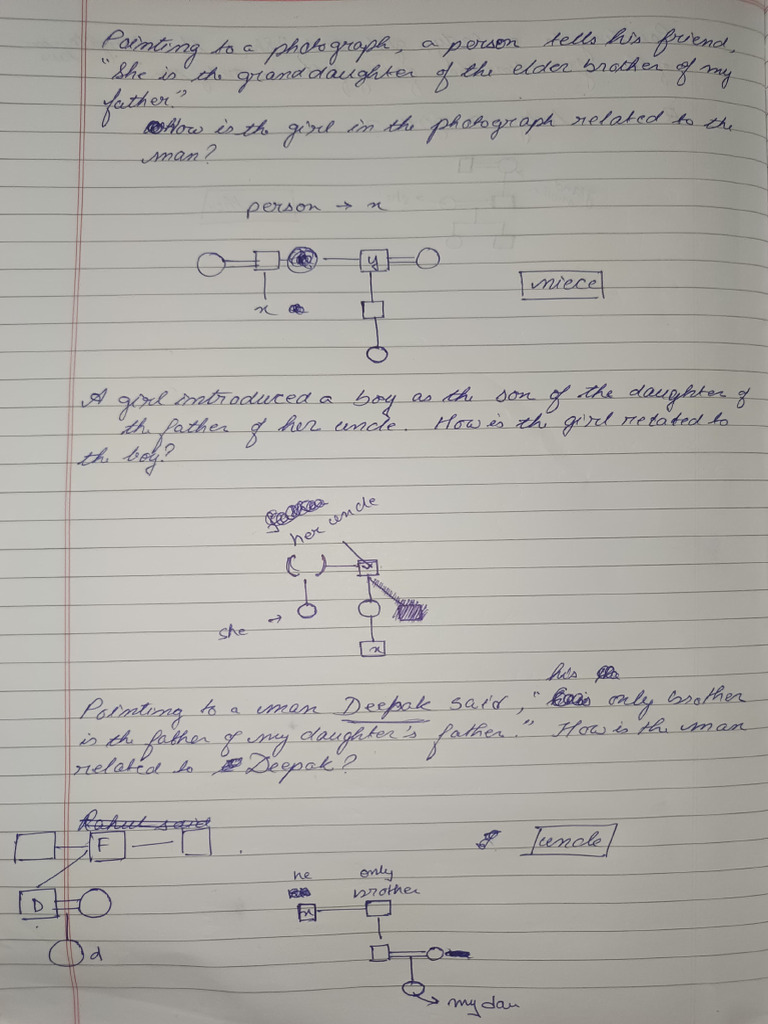 Pointing to a photograph, a person tells his friend,
"She is the granddaughter of the elder brother of my
father."
How is the girl in the photograph related to the
man?
person → x
y
niece
x
A girl introduced a boy as the son of the daughter of
th father of her uncle. How is the girl related to
the boy?
her uncle
she →
x
his
Pointing to a man Deepak said, " only brother
is the father of my daughter's father." How is the man
related to Deepak?
Rahul said
F
uncle
he only
brother
D
x
d
my dau